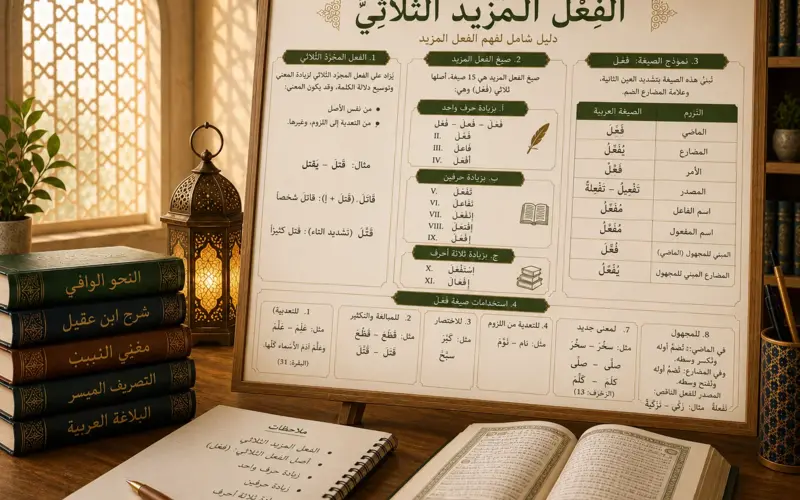 الفِعْل المزيد الثلاثيّ
دليل شامل لفهم الفعل المزيد
1. الفعل المجرّد الثلاثي
يُزاد على الفعل المجرّد الثلاثي لزيادة المعني
وتوسيع دلالة الكلمة، وقد يكون المعنى:
من نفس الأصل
من التعدية إلى اللزوم، وغيرها.
مثال: قَتلَ – يَقتل
قَاتَلَ. (قتلَ + إ): قاتلَ شخصاً
قَتَّلَ. (تشديد التاء): قتل كثيرًا
2. صيغ الفعل المزيد
صيغ الفعل المزيد هي 15 صيغة، أصلها
ثلاثي (فَعَل) وهي:
أ. بزيادة حرف واحد
فعَلَ – فَعلَ – فعَل
II. فَعَّلَ
III. فاعلَ
IV. أفعَل
ب. بزيادة حرفين
V. تَفَعَّل
VI. تَفاعَل
VII. إنفَعَل
VIII. إفتَعل
IX. إفعَلَّ
ج. بزيادة ثلاثة أحرف
X. إستَفْعَل
XI. إفعَالَ
3. نموذج الصيغة: فَعّلَ
تُبنىُ هذه الصيغة بتشديد العين الثانية،
وعلامة المضارع الضم.
الصيغة العربية
الماضي فَعَّل
المضارع يُفَعِّل
الأمر فَعِّل
المصدر تَفْعِيل – تَفْعِلة
اسم الفاعل مُفَعِّل
اسم المفعول مُفَعَّل
المبني للمجهول (الماضي) فُعَّل
المضارع المبني للمجهول يُفَعَّل
4. استخدامات صيغة فعَلَ
1. (للتعدية)
مثل: عَلِمَ – عَلَّمَ
وعلَّم آدَمَ الأسماء كُلَّها.
(البقرة: 31)
2. للمبالغة والتكثير
مثل: قَطَعَ – قَطَّعَ
قتَل – قَتَّل
3. للاختصار
مثل: كَبَّر
سبّحَ
4. للتعدية من اللزوم
مثل: نام – نَوّم
7. لمعنى جديد
مثل: سخَرَ – سخّر
صلّى – صلى
كلَم – كَلَّم
(الزخرف: 13)
8. للمجهول
في الماضي: تُضمُّ أوله
وتُكسر وسطه.
وفي المضارع: تُضمُّ أوله
وتُفتح وسطه.
المصدر للفعل الناقص:
تَفعلةً مثال: زكّي – تزكيةً
النحو الوافي
شرح ابن عقيل
مغني النبيب
التصريف الميسر
البلاغة العربية
ملاحظات
الفعل المزيد الثلاثي
أصل الفعل الثلاثي: (فعَل)
زيادة حرف واحد
زيادة حرفين
زيادة ثلاثة أحرف